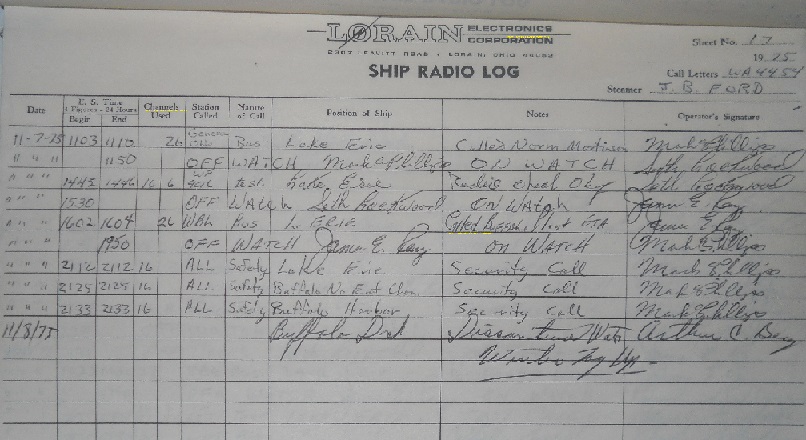 LORAIN ELECTRONICS CORPORATION
LORAIN, OHIO
SHIP RADIO LOG
Sheet No. 17
1975
Call Letters WA4454
Steamer J. B. FORD
Date U. S. Time Begin End Channels Used Station Called Nature of Call Position of Ship Notes Operator's Signature
11-7-75 1103 1110 26 Bus Lake Erie Called Norm Mark Phillips
" " " 1150 OFF WATCH Mark Phillips ON WATCH Seth
" " " 1445 1446 16 6 test Lake Erie Radio check Okay Seth
" " " 1530 OFF Watch Seth ON Watch James E.
" " " 1602 1604 26 Bus L. ERIE James E.
" " " 1950 OFF WATCH James E. ON WATCH Mark Phillips
" " " 2112 2112 16 ALL Safety Lake Erie Security Call Mark Phillips
" " " 2125 2125 16 ALL Safety Buffalo No East Security Call Mark Phillips
" " " 2133 2133 16 ALL Safety Buffalo Harbor Security Call Mark Phillips
11/8/75 Buffalo Arthur C.
Winter